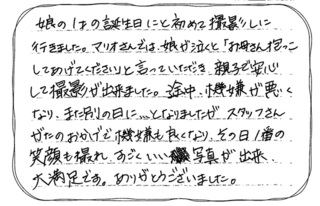 娘の1才の誕生日にと初めて撮影しに
行きました。マリオさんでは、娘が泣くと「お母さん抱っこ
してあげてください」と言っていただき、親子で安心
して撮影が出来ました。途中、機嫌が悪く
なり、また別の日に…となりましたが、スタッフさん
がたのおかげで機嫌も良くなり、その日1番の
笑顔も撮れ、すごくいい写真が出来、
大満足です。ありがとうございました。